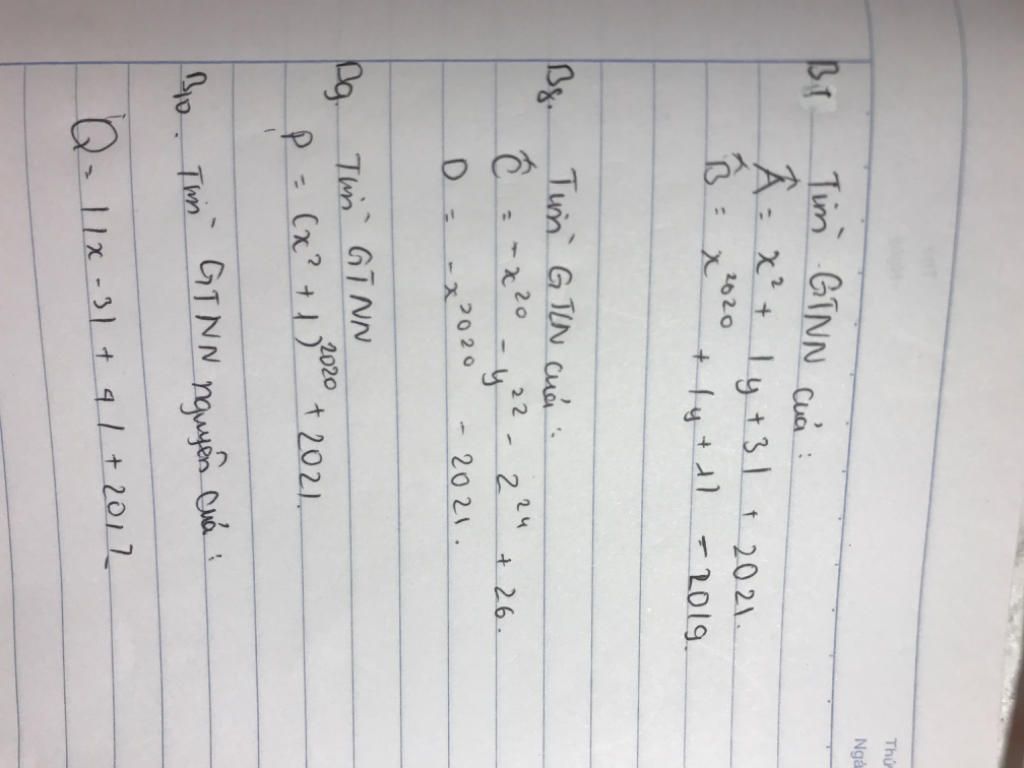 B7 Tìm GTNN của :
A = x² + |y + 3| + 2021.
B = x²⁰²⁰ + |y + 1| - 2019.
B8. Tìm GTLN của :
C = - x²⁰ - y²² - z²⁴ + 26.
D = - x²⁰²⁰ - 2021.
B9. Tìm GTNN
P = (x² + 1)²⁰²⁰ + 2021.
B10. Tìm GTNN nguyên của :
Q = ||x - 3| + 4| + 2017
Thứ
Ngà